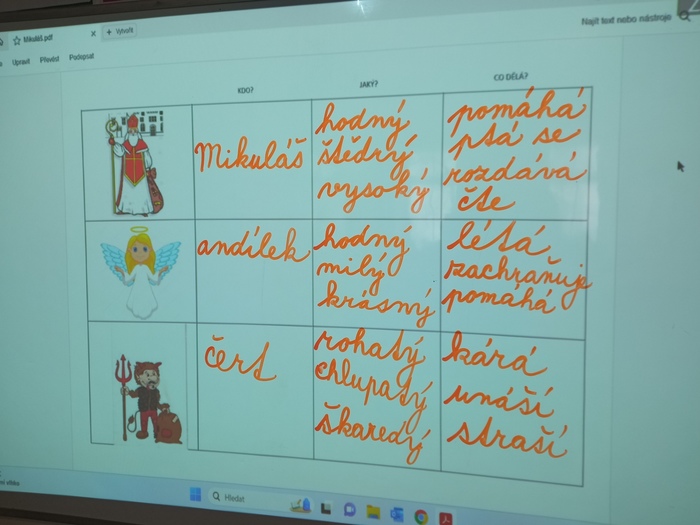 Mikuláš.pdf
Vytvořit
Najít text nebo nástroje
Upravit Převést Podepsat
KDO? JAKÝ? CO DĚLÁ?
Mikuláš
hodný
štědrý
vysoký
pomáhá
ptá se
rozdává
čte
andílek
hodný
milý
krásný
létá
zachraňuje
pomáhá
čert
rohatý
chlupatý
škaredý
kárá
unáší
straší
Hledat